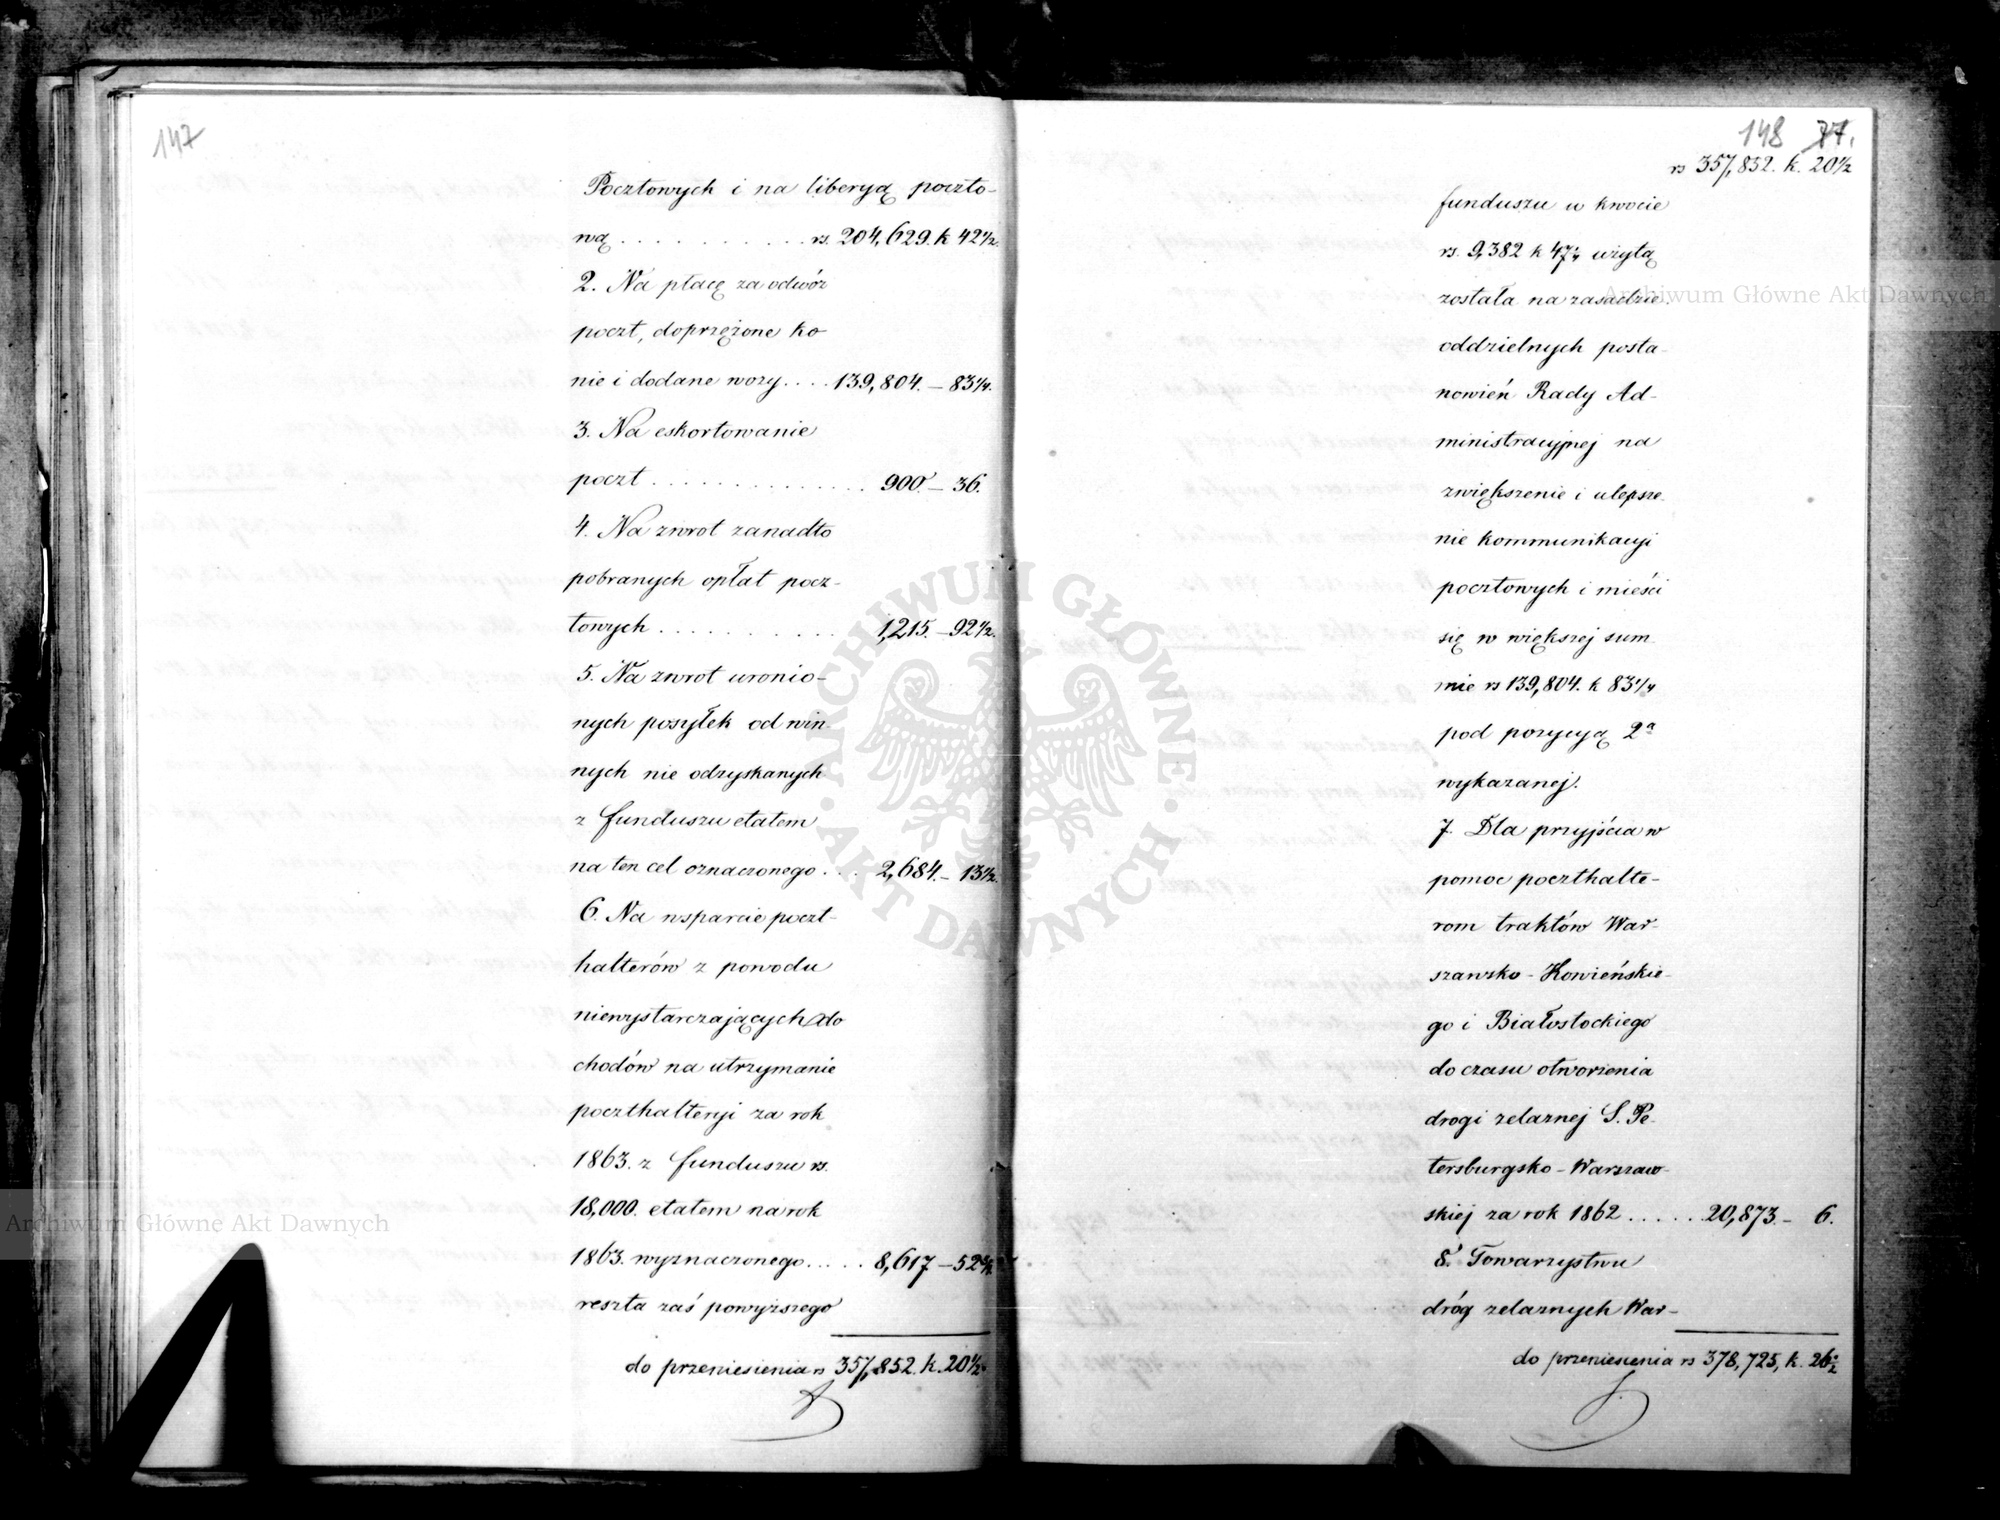 147
Pocztowych i na liberyą poczto-
wą . . . . . . . . . . . rs. 204,629. k 42½.
2. Na płacę za odwóz
poczt, doprzężone ko-
nie i dodane wozy . . . . 139,804. — 83¼.
3. Na eskortowanie
poczt . . . . . . . . . . . . . . 900. — 36.
4. Na zwrot zanadto
pobranych opłat pocz-
towych . . . . . . . . . . . 1,215. — 92½.
5. Na zwrot uronio-
nych posyłek od win-
nych nie odzyskanych
z funduszu etatem
na ten cel oznaczonego . . . 2,684. — 13½.
6. Na wsparcie poczt-
halterów z powodu
niewystarczających do
chodów na utrzymanie
poczthalteryi za rok
1863. z funduszu rs.
18,000. etatem na rok
1863. wyznaczonego . . . . . 8,617 — 52
reszta zaś powyższego
do przeniesienia rs 357,852. k. 20½.
148 77.
rs 357,852. k. 20½
funduszu w kwocie
rs. 9,382 k 47¼ użytą
została na zasadzie
oddzielnych posta-
nowień Rady Ad-
ministracyjnej na
zwiększenie i ulepsze
nie kommunikacyi
pocztowych i mieści
się w większej sum-
mie rs 139,804. k 83¼
pod pozycyą 2ą
wykazanej.
7. Dla przyjścia w
pomoc poczthalte-
rom traktów War-
szawsko - Kowieńskie-
go i Białostockiego
do czasu otworzenia
drogi żelaznej S. Pe-
tersburgsko - Warszaw-
skiej za rok 1862 . . . . . 20,873. — 6.
8. Towarzystwu
dróg żelaznych War-
do przeniesienia rs 378,725, k. 26½
ARCHIWUM GŁÓWNE · AKT DAWNYCH ·
Archiwum Główne Akt Dawnych
Archiwum Główne Akt Dawnych